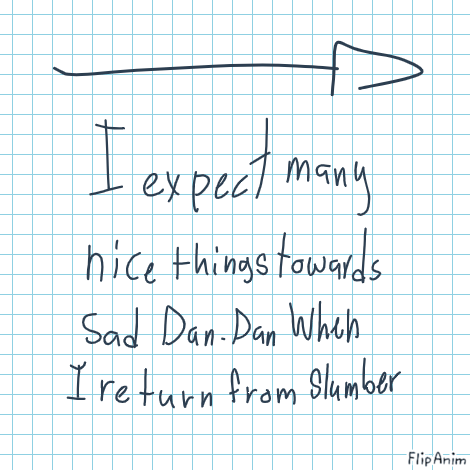 I expect many
nice things towards
Sad Dan-Dan When
I return from Slumber
FlipAnim